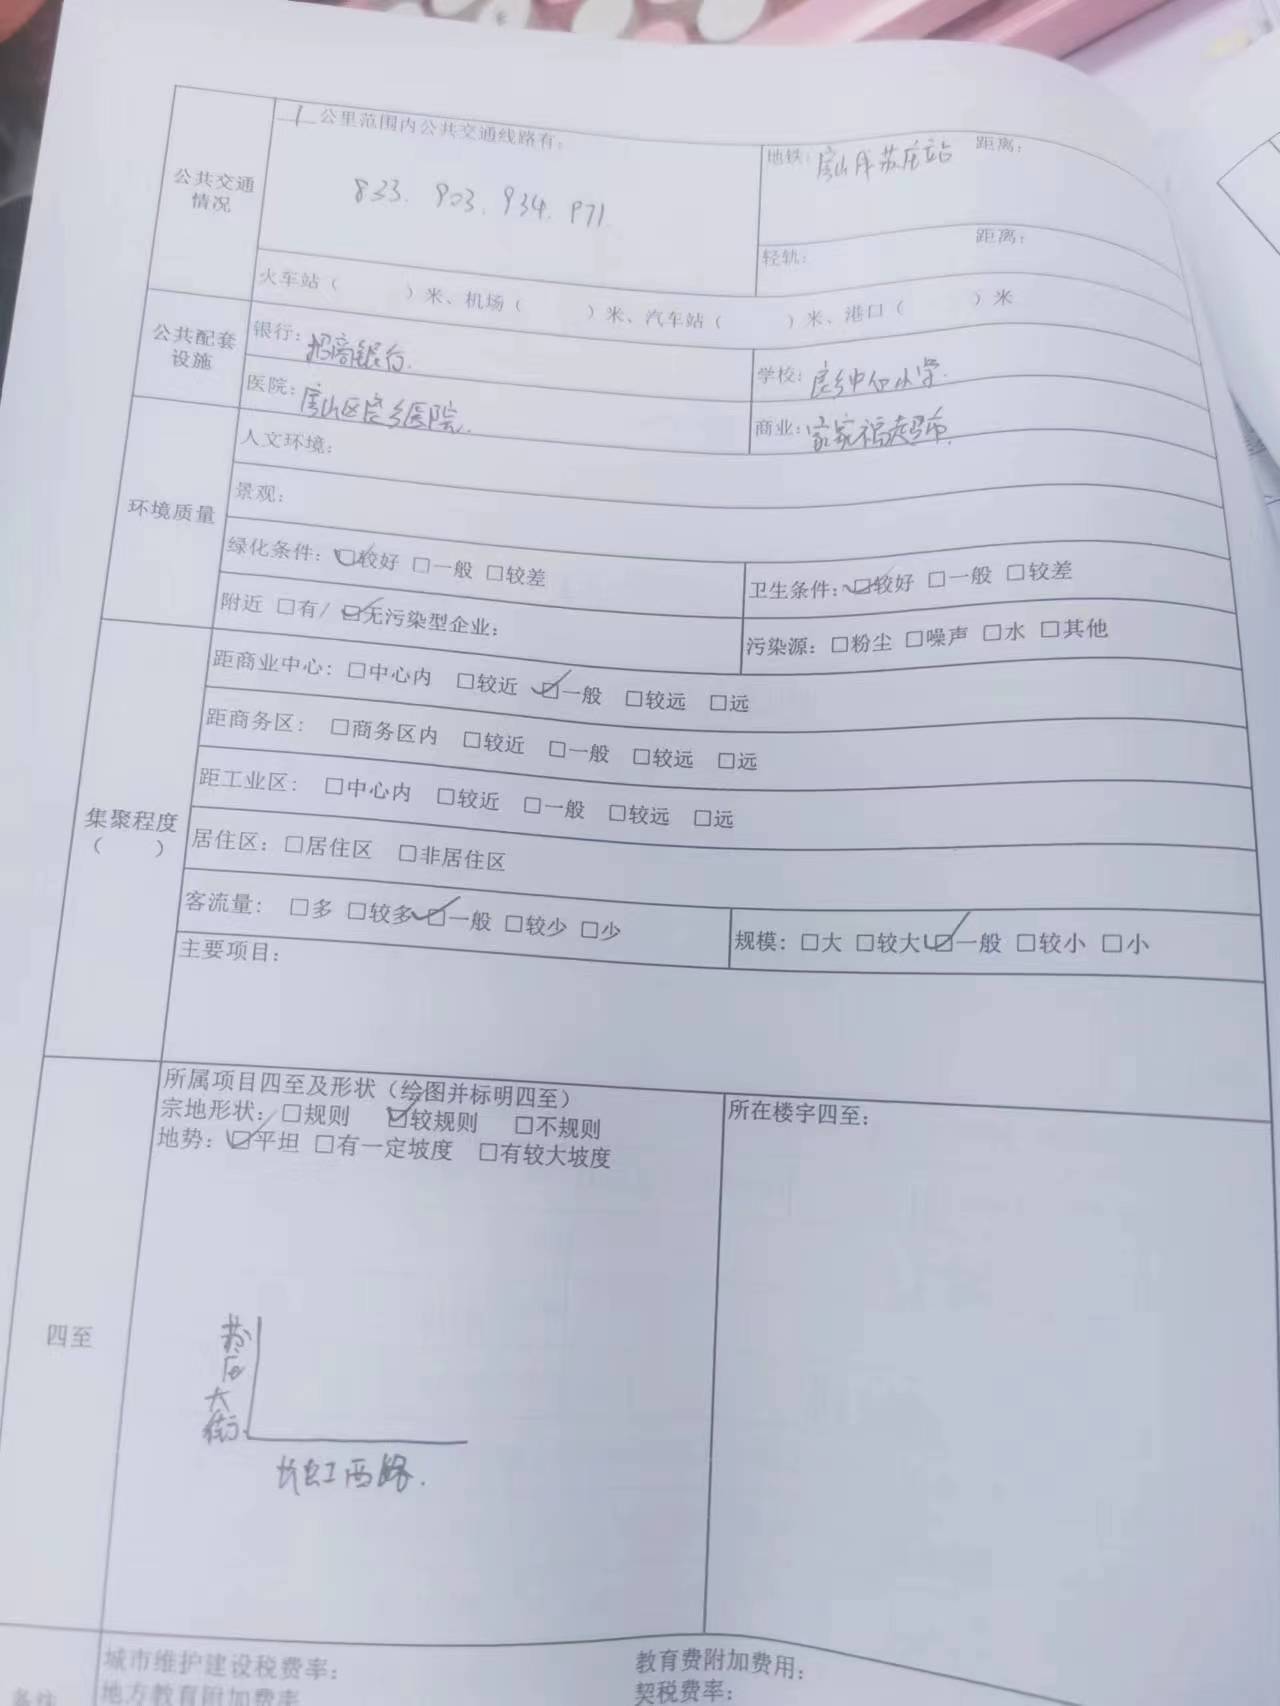 公共交通情况
1 公里范围内公共交通线路有：
833. 903. 934. 971.
地铁：房山线苏庄站 距离：
轻轨： 距离：
火车站（ ）米、机场（ ）米、汽车站（ ）米、港口（ ）米
公共配套设施
银行：招商银行.
学校：良乡中心小学.
医院：房山区良乡医院.
商业：家家福超市.
环境质量
人文环境：
景观：
绿化条件：☑较好 □一般 □较差
卫生条件：☑较好 □一般 □较差
附近 □有/ ☑无污染型企业：
污染源：□粉尘 □噪声 □水 □其他
集聚程度
（ ）
距商业中心：□中心内 □较近 ☑一般 □较远 □远
距商务区： □商务区内 □较近 □一般 □较远 □远
距工业区： □中心内 □较近 □一般 □较远 □远
居住区：□居住区 □非居住区
客流量： □多 □较多 ☑一般 □较少 □少
规模：□大 □较大 ☑一般 □较小 □小
主要项目：
四至
所属项目四至及形状（绘图并标明四至）
宗地形状：□规则 ☑较规则 □不规则
地势：☑平坦 □有一定坡度 □有较大坡度
所在楼宇四至：
苏庄大街
长虹西路.
备注
城市维护建设税费率：
教育费附加费用：
地方教育附加费率
契税费率：